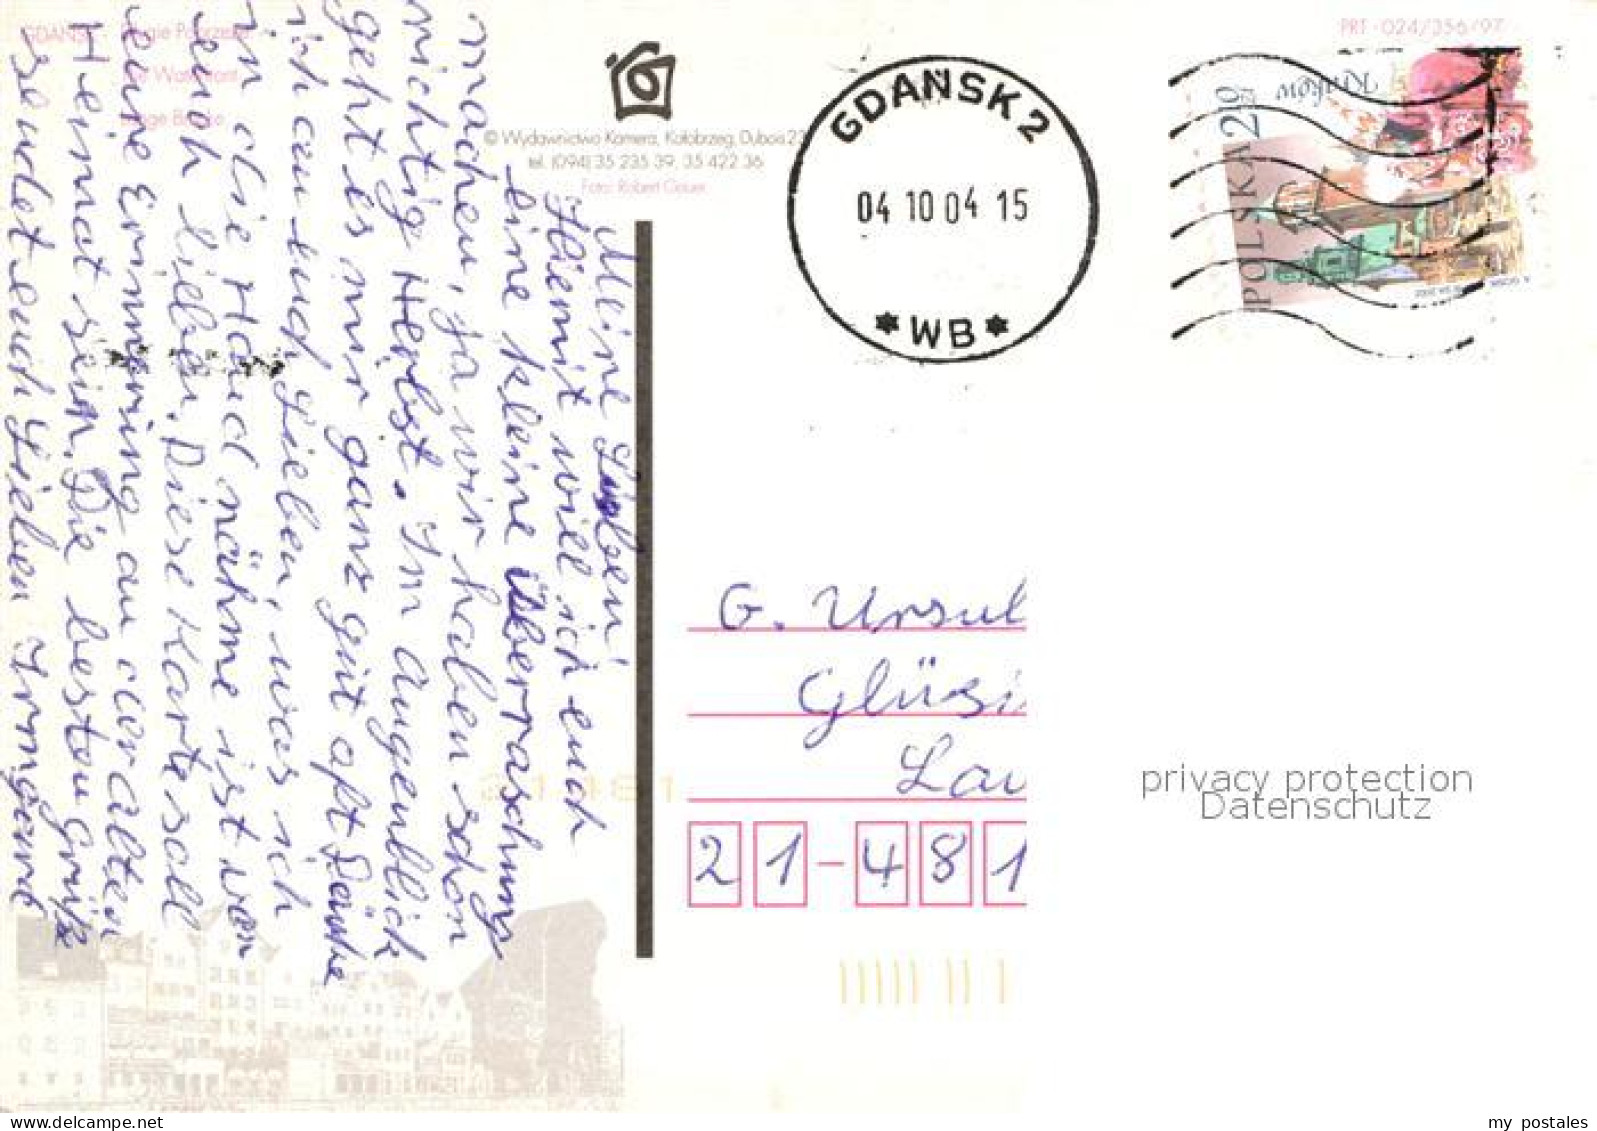 GDAŃSK - Długie Pobrzeże
The Waterfront
Lange Brücke
PRT - 024/356/97
© Wydawnictwo Kamera, Kołobrzeg, Dubois 23
tel. (094) 35 235 39, 35 422 36
Foto: Robert Gauer
GDAŃSK 2
04 10 04 15
* WB *
POLSKA 2 10 ZŁ
Kraków
Meine Lieben!
Hiemit will ich euch
eine kleine Überraschung
machen, ja wir haben schon
michtig Herbst. Im Augenblick
geht es mir ganz gut oft Denke
ich an euch Lieben, was ich
in die Hand nähme ist von
euch lieben. Diese Karte soll
eure Erinnering an der alten
Heimat sein. Die besten Grüße
sendet euch Lieben Irmgard
G. Ursul
Glüsi
Lau
21-481
21481
privacy protection
Datenschutz
my_postales